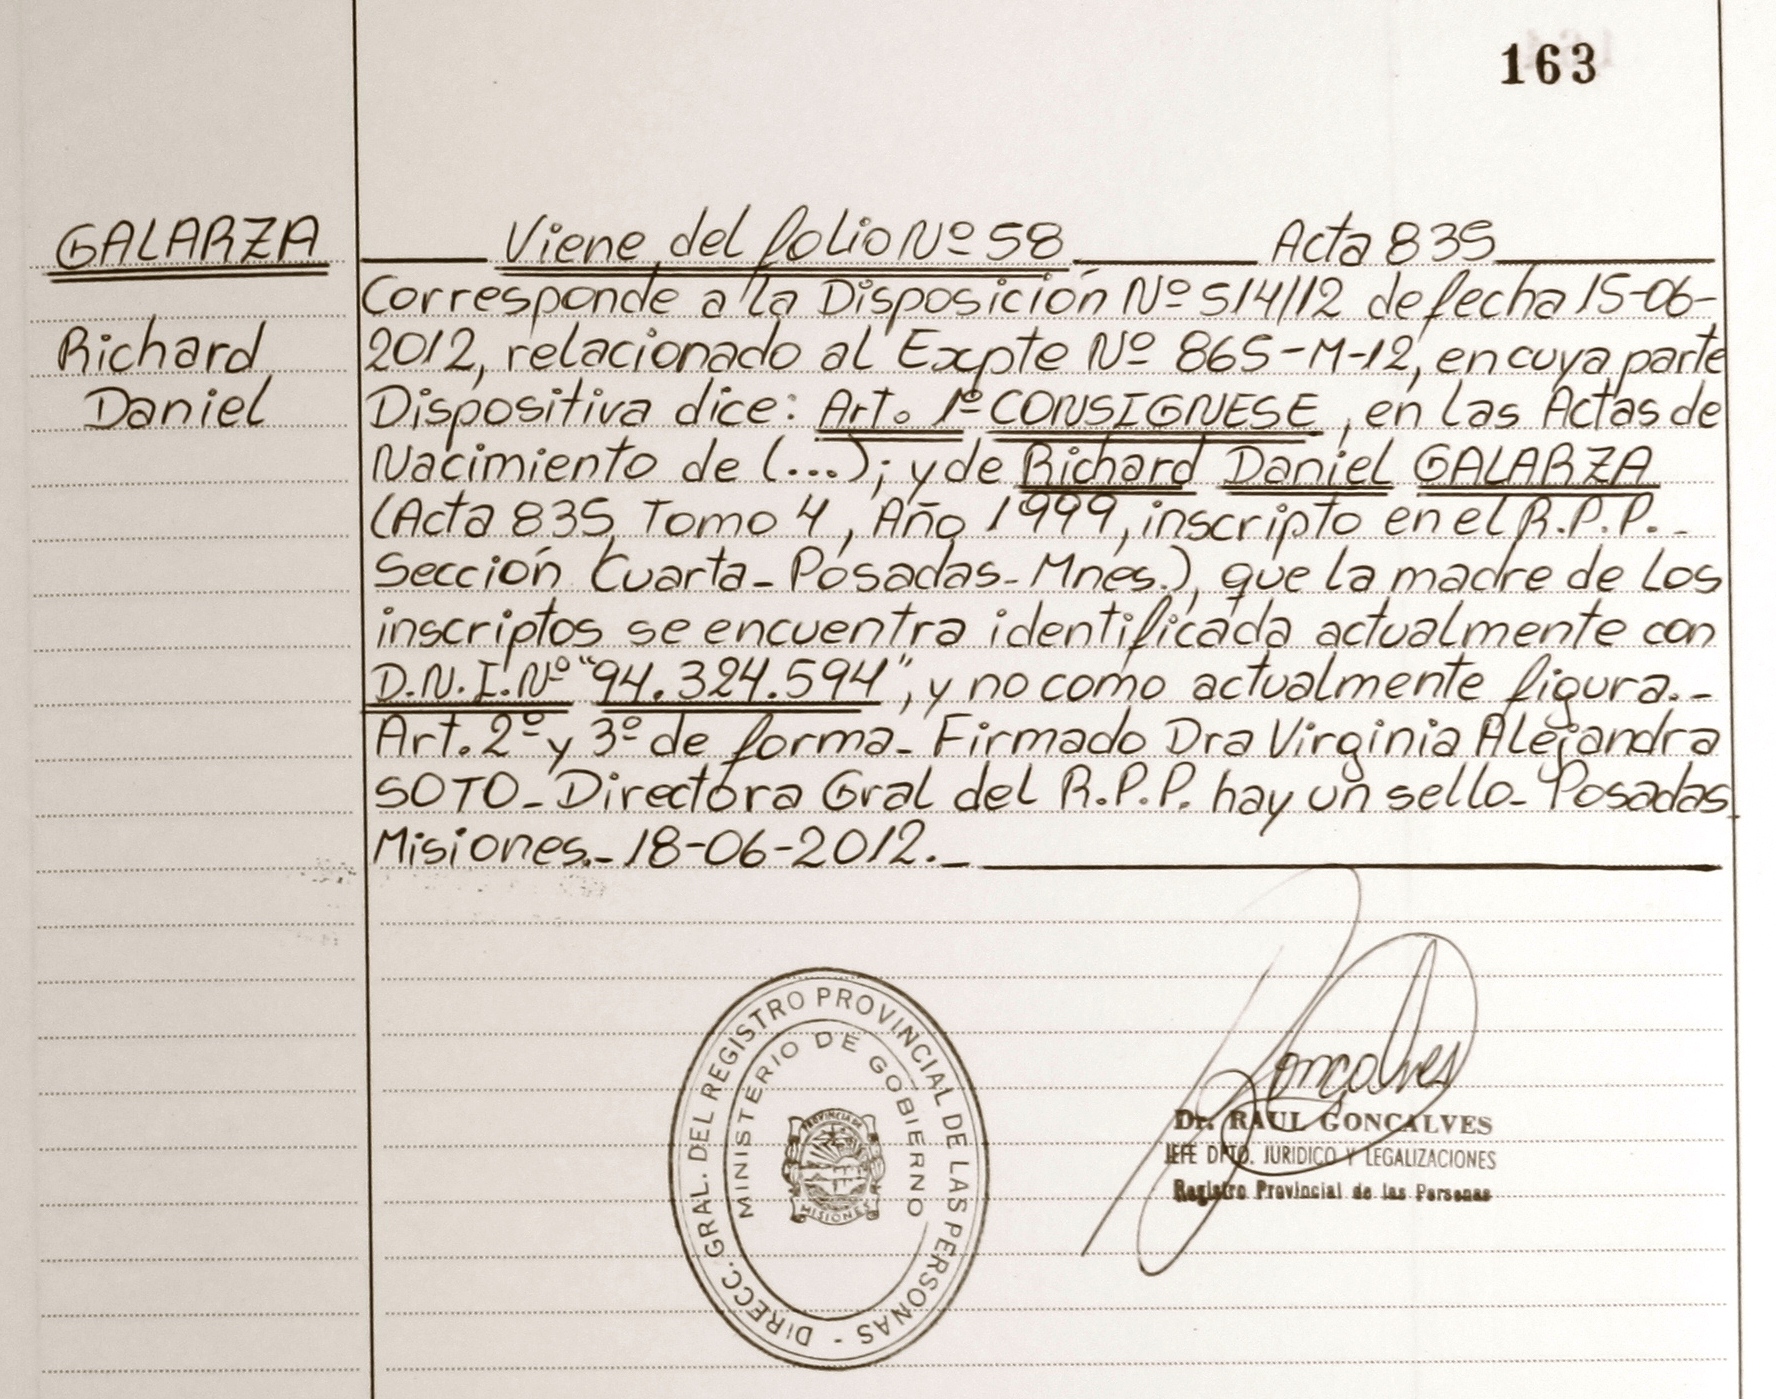 163
GALARZA
Richard
Daniel
Viene del folio Nº 58 Acta 835
Corresponde a la Disposición Nº 514/12 de fecha 15-06-
2012, relacionado al Expte Nº 865-M-12, en cuya parte
Dispositiva dice: Art. 1º CONSIGNESE, en las Actas de
Nacimiento de (...); y de Richard Daniel GALARZA
(Acta 835, Tomo 4, Año 1999, inscripto en el R.P.P.-
Sección Cuarta- Posadas- Mnes.), que la madre de los
inscriptos se encuentra identificada actualmente con
D.N.I. Nº "94.324.594", y no como actualmente figura.-
Art. 2º y 3º de forma- Firmado Dra Virginia Alejandra
SOTO- Directora Gral del R.P.P. hay un sello- Posadas
Misiones.- 18-06-2012.-
DIRECC. GRAL. DEL REGISTRO PROVINCIAL DE LAS PERSONAS -
MINISTERIO DE GOBIERNO
PROVINCIA DE
MISIONES
Gonçalves
Dr. RAUL GONCALVES
JEFE DPTO. JURIDICO Y LEGALIZACIONES
Registro Provincial de las Personas